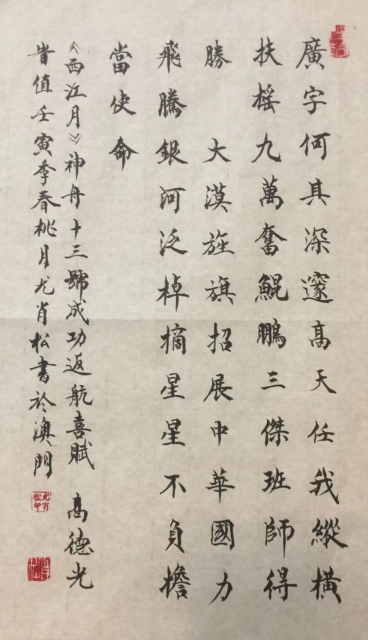 廣宇何其深邃高天任我縱橫
扶搖九萬奮鯤鵬三傑班師得
勝 大漠旌旗招展中華國力
飛騰銀河泛棹摘星星不負擔
當使命
《西江月》神舟十三號成功返航喜賦 高德光
旹值壬寅季春桃月尤肖松書於澳門
尤肖松印